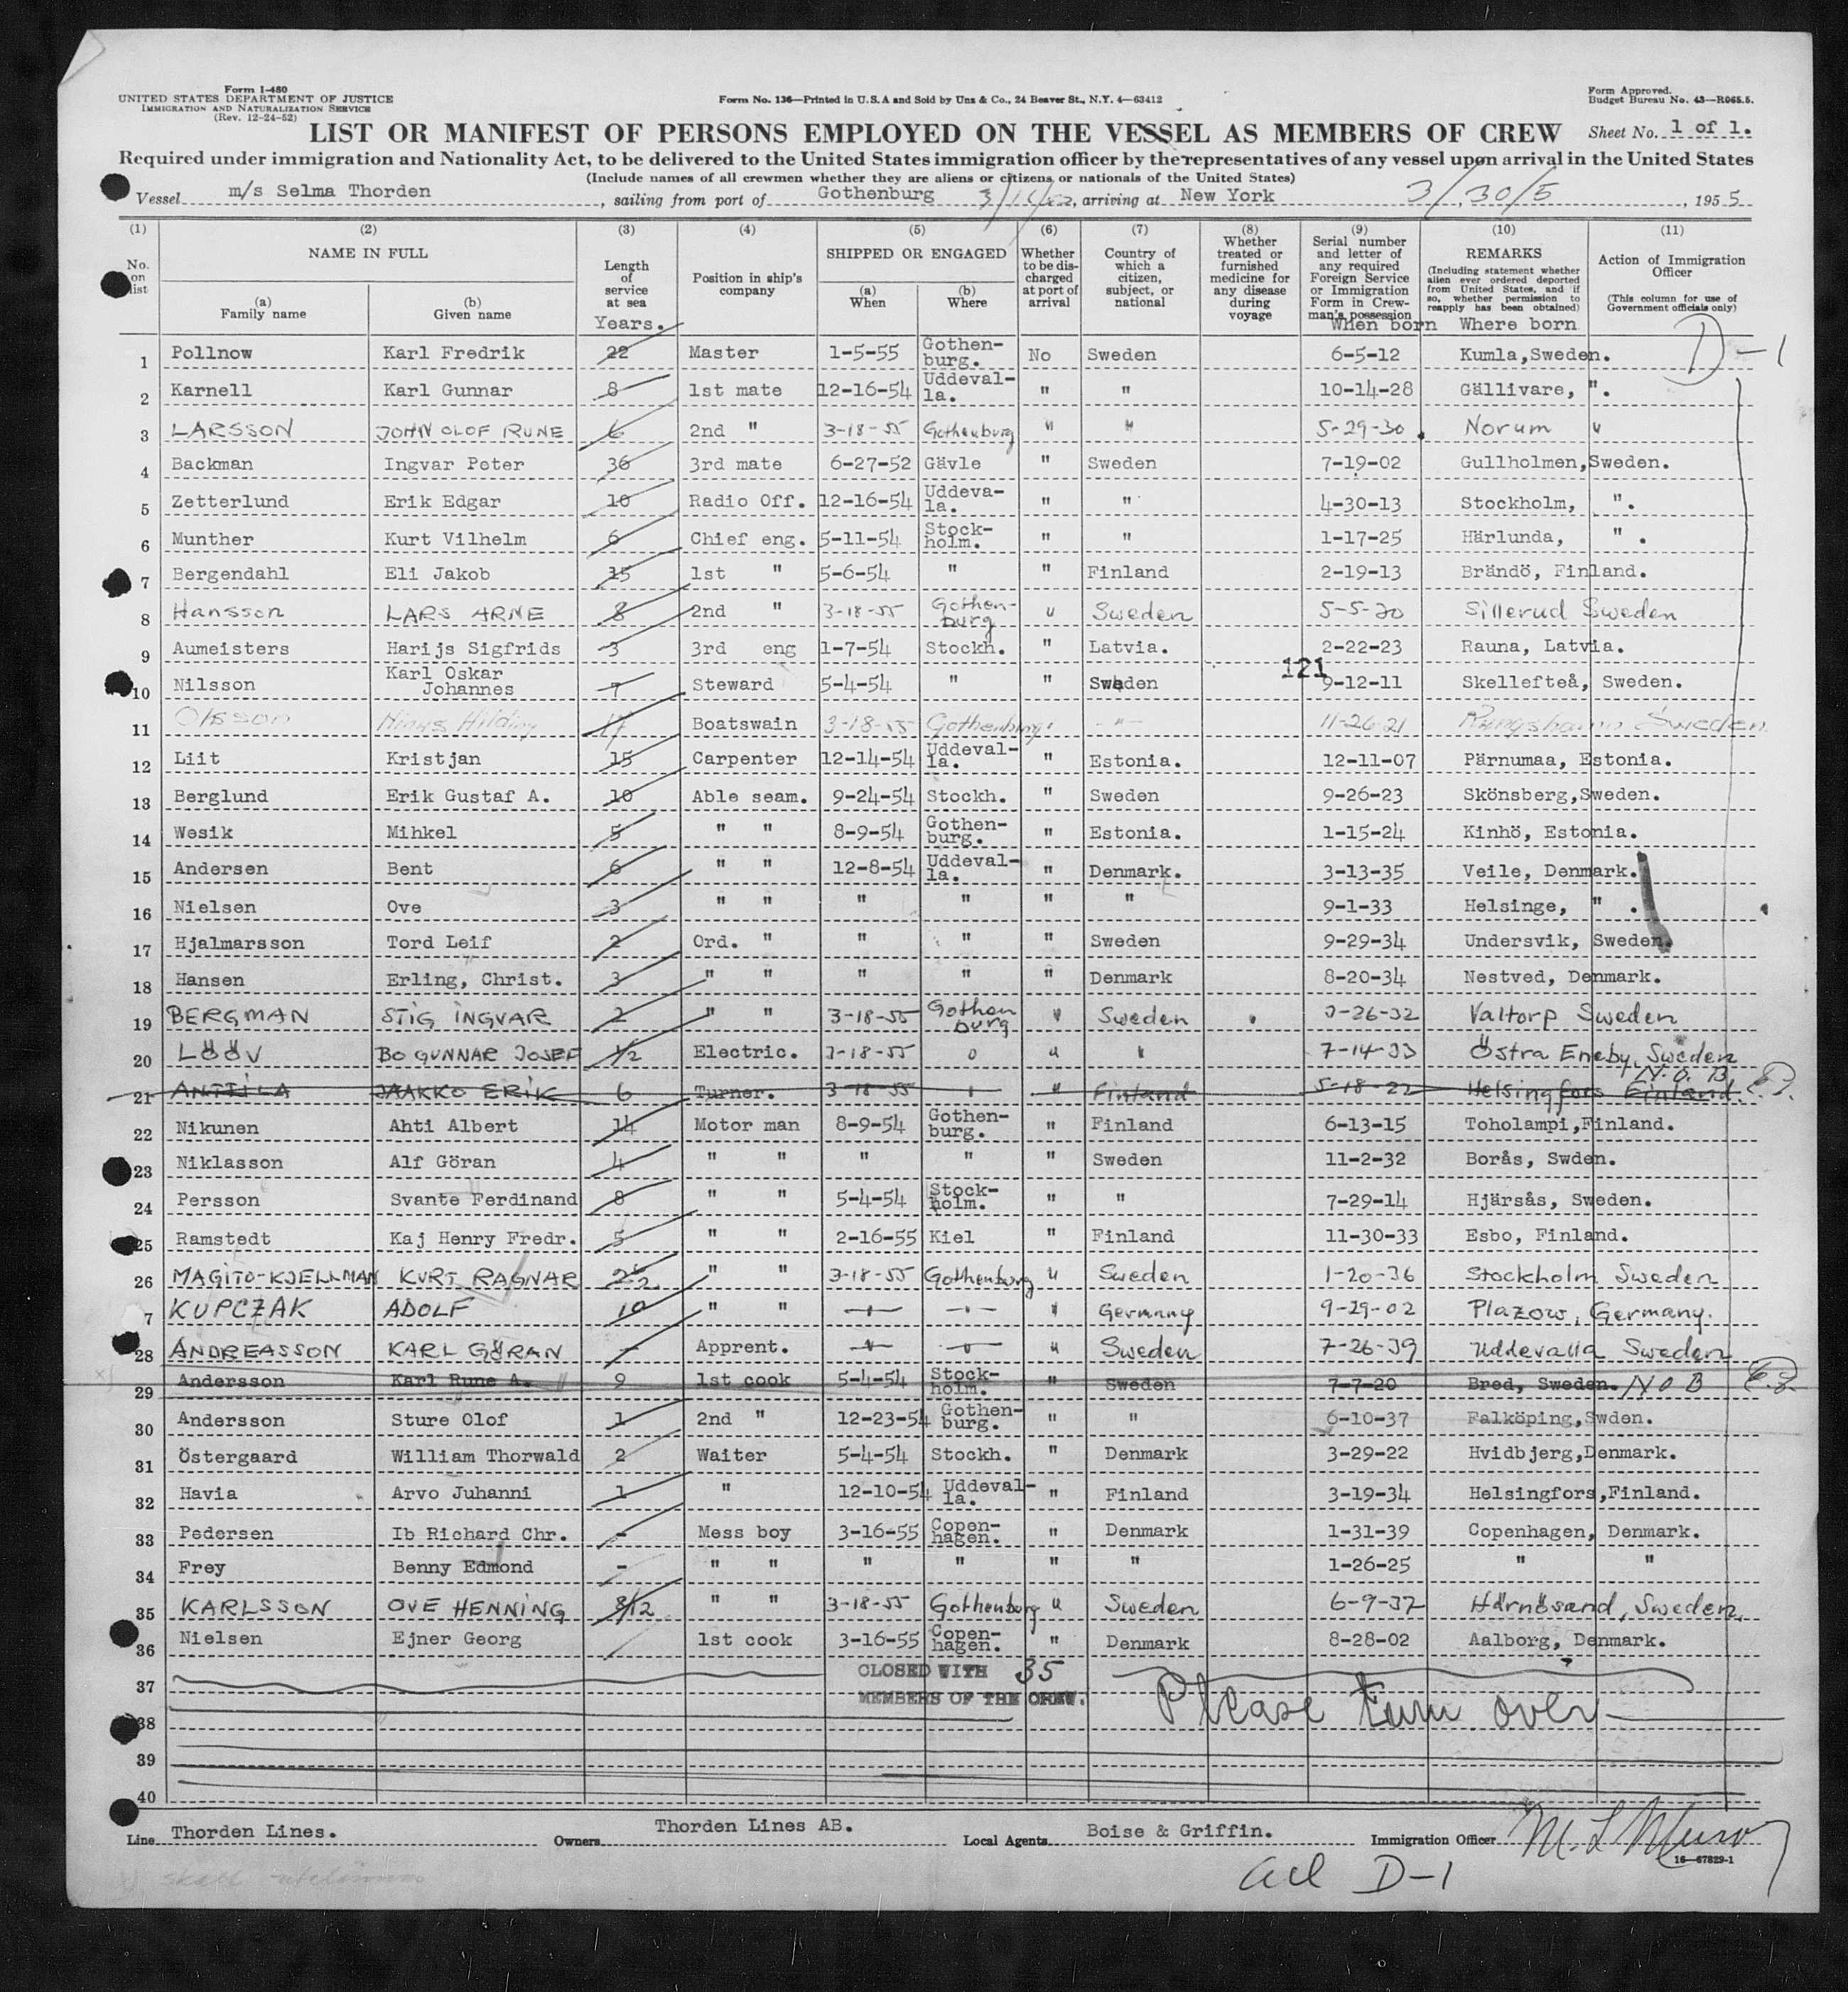 Form I-480
UNITED STATES DEPARTMENT OF JUSTICE
IMMIGRATION AND NATURALIZATION SERVICE
(Rev. 12-24-52)
Form No. 136—Printed in U.S.A and Sold by Unz & Co., 24 Beaver St., N.Y. 4—63412
Form Approved.
Budget Bureau No. 43—R065.5.
LIST OR MANIFEST OF PERSONS EMPLOYED ON THE VESSEL AS MEMBERS OF CREW
Sheet No. 1 of 1.
Required under immigration and Nationality Act, to be delivered to the United States immigration officer by the representatives of any vessel upon arrival in the United States
(Include names of all crewmen whether they are aliens or citizens or nationals of the United States)
Vessel m/s Selma Thorden, sailing from port of Gothenburg, arriving at New York 3/30/5, 1955
(1) (2) (3) (4) (5) (6) (7) (8) (9) (10) (11)
No. on list
NAME IN FULL
(a) Family name
(b) Given name
Length of service at sea
Years.
Position in ship's company
SHIPPED OR ENGAGED
(a) When
(b) Where
Whether to be discharged at port of arrival
Country of which a citizen, subject, or national
Whether treated or furnished medicine for any disease during voyage
Serial number and letter of any required Foreign Service or Immigration Form in Crewman's possession
When born
REMARKS
(Including statement whether alien ever ordered deported from United States, and if so, whether permission to reapply has been obtained)
Where born
Action of Immigration Officer
(This column for use of Government officials only)
D-1
1 Pollnow Karl Fredrik 22 Master 1-5-55 Gothen-burg. No Sweden 6-5-12 Kumla,Sweden.
2 Karnell Karl Gunnar 8 1st mate 12-16-54 Uddeval-la. " " 10-14-28 Gällivare, ".
3 LARSSON JOHN OLOF RUNE 6 2nd " 3-18-55 Gothenburg " " 5-29-30 Norum "
4 Backman Ingvar Peter 36 3rd mate 6-27-52 Gävle " Sweden 7-19-02 Gullholmen,Sweden.
5 Zetterlund Erik Edgar 10 Radio Off. 12-16-54 Uddeva-la. " " 4-30-13 Stockholm, ".
6 Munther Kurt Vilhelm 6 Chief eng. 5-11-54 Stock-holm. " " 1-17-25 Härlunda, ".
7 Bergendahl Eli Jakob 15 1st " 5-6-54 " " Finland 2-19-13 Brändö, Finland.
8 Hansson LARS ARNE 8 2nd " 3-18-55 Gothen-burg " Sweden 5-5-20 Sillerud Sweden
9 Aumeisters Harijs Sigfrids 3 3rd eng 1-7-54 Stockh. " Latvia. 2-22-23 Rauna, Latvia.
121
10 Nilsson Karl Oskar Johannes 7 Steward 5-4-54 " " Sweden 9-12-11 Skellefteå, Sweden.
11 Olsson Hilding 17 Boatswain 3-18-55 Gothenburg " " 11-26-21 Sweden
12 Liit Kristjan 15 Carpenter 12-14-54 Uddeval-la. " Estonia. 12-11-07 Pärnumaa, Estonia.
13 Berglund Erik Gustaf A. 10 Able seam. 9-24-54 Stockh. " Sweden 9-26-23 Skönsberg,Sweden.
14 Wesik Mihkel 5 " " 8-9-54 Gothen-burg. " Estonia. 1-15-24 Kinhö, Estonia.
15 Andersen Bent 6 " " 12-8-54 Uddeval-la. " Denmark. 3-13-35 Veile, Denmark.
16 Nielsen Ove 3 " " " " " " 9-1-33 Helsinge, ".
17 Hjalmarsson Tord Leif 2 Ord. " " " " Sweden 9-29-34 Undersvik, Sweden.
18 Hansen Erling, Christ. 3 " " " " " Denmark 8-20-34 Nestved, Denmark.
19 BERGMAN STIG INGVAR 2 " " 3-18-55 Gothenburg " Sweden -26-32 Valtorp Sweden
20 LÖÖV BO GUNNAR JOSEF 1/2 Electric. 3-18-55 " " " 7-14-33 Östra Eneby, Sweden
N.O.B.
21 ANTTILA JAAKKO ERIK 6 Turner. 3-18-55 " " Finland 5-18-22 Helsingfors Finland.
22 Nikunen Ahti Albert 14 Motor man 8-9-54 Gothen-burg. " Finland 6-13-15 Toholampi,Finland.
23 Niklasson Alf Göran 4 " " " " " Sweden 11-2-32 Borås, Swden.
24 Persson Svante Ferdinand 8 " " 5-4-54 Stock-holm. " " 7-29-14 Hjärsås, Sweden.
25 Ramstedt Kaj Henry Fredr. 5 " " 2-16-55 Kiel " Finland 11-30-33 Esbo, Finland.
26 MAGITO-KJELLMAN KURT RAGNAR " " 3-18-55 Gothenburg " Sweden 1-20-36 Stockholm Sweden
7 KUPCZAK ADOLF 10 " " " " " Germany 9-29-02 Plazow, Germany.
28 ANDREASSON KARL GÖRAN - Apprent. " " " Sweden 7-26-39 Uddevalla Sweden
29 Andersson Karl Rune A. 9 1st cook 5-4-54 Stock-holm. " Sweden 7-7-20 Bred, Sweden. NOB
30 Andersson Sture Olof 1 2nd " 12-23-54 Gothen-burg. " " 6-10-37 Falköping,Swden.
31 Östergaard William Thorwald 2 Waiter 5-4-54 Stockh. " Denmark 3-29-22 Hvidbjerg,Denmark.
32 Havia Arvo Juhanni 1 " 12-10-54 Uddeval-la. " Finland 3-19-34 Helsingfors,Finland.
33 Pedersen Ib Richard Chr. - Mess boy 3-16-55 Copen-hagen. " Denmark 1-31-39 Copenhagen, Denmark.
34 Frey Benny Edmond - " " " " " " 1-26-25 " "
35 KARLSSON OVE HENNING 8/12 " " 3-18-55 Gothenburg " Sweden 6-9-37 Härnösand, Sweden.
36 Nielsen Ejner Georg 1st cook 3-16-55 Copen-hagen. " Denmark 8-28-02 Aalborg, Denmark.
37 CLOSED WITH 35
MEMBERS OF THE CREW.
Please turn over
38
39
40
Line Thorden Lines. Owners Thorden Lines AB. Local Agents Boise & Griffin. Immigration Officer
16—67829-1
all D-1